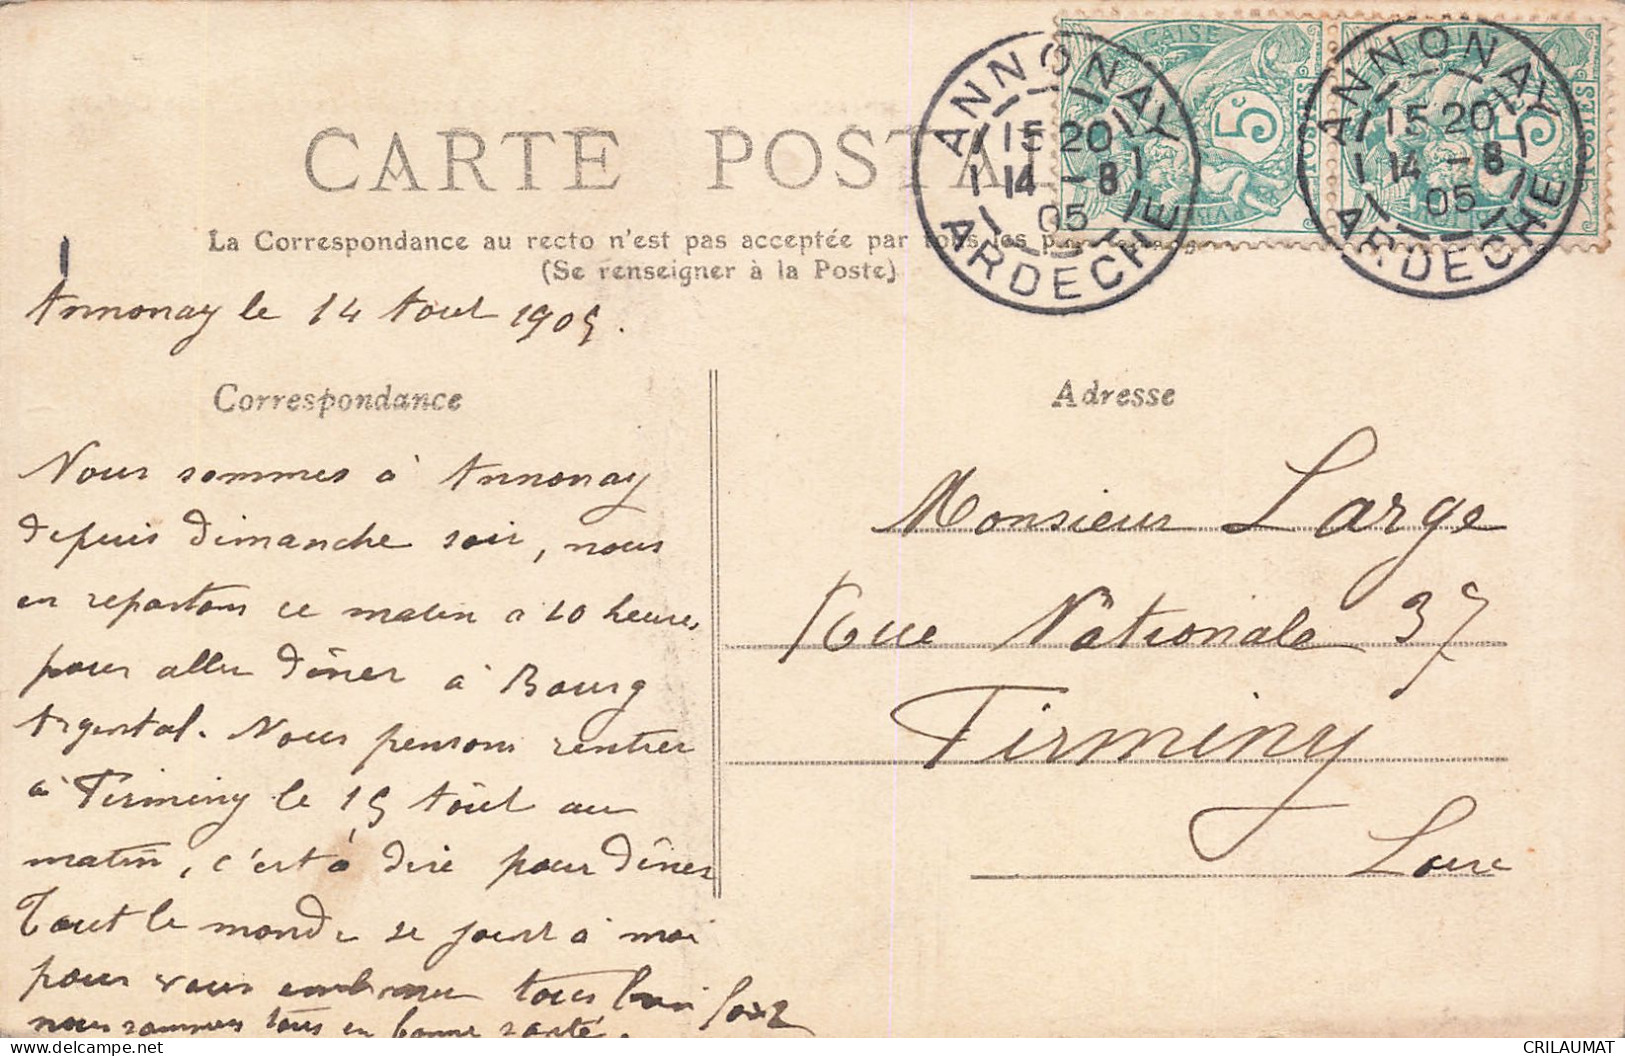 CARTE POSTA
La Correspondance au recto n'est pas acceptée par tous les p
(Se renseigner à la Poste)
ANNONAY
15 20
14 -8
05
ARDECHE
ÇAISE
5c
POSTES
ANNONAY
15 20
14 -8
05
ARDECHE
5
POSTES
Annonay le 14 Aout 1905.
Correspondance
Nous sommes à Annonay
depuis dimanche soir, nous
en repartons ce matin a 10 heures
pour aller dîner à Bourg
Argental. Nous pensons rentrer
à Firminy le 15 Aôut au
matin, c'est à dire pour dîner
Tout le monde se joint à moi
pour vous embrasser tous
nous sommes tous en bonne santé.
Adresse
Monsieur Large
Rue Nationale 37
Firminy
Loire
CRILAUMAT